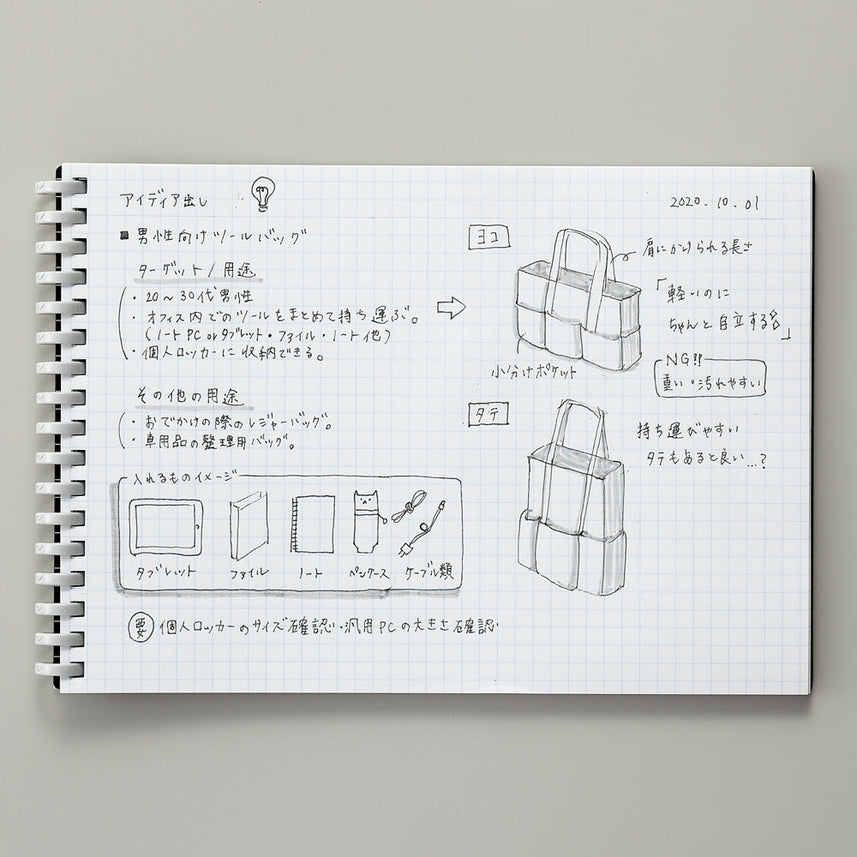 アイディア出し
2020.10.01
■男性向けツールバッグ
ターゲット/用途
・20〜30代男性
・オフィス内でのツールをまとめて持ち運ぶ。
(ノートPC orタブレット・ファイル・ノート他)
・個人ロッカーに収納できる。
その他の用途
・おでかけの際のレジャーバッグ。
・車用品の整理用バッグ。
入れるものイメージ
タブレット
ファイル
ノート
ペンケース
ケーブル類
要 個人ロッカーのサイズ確認・汎用PCの大きさ確認
ヨコ
肩にかけられる長さ
「軽いのに
ちゃんと自立する」
小分けポケット
NG!!
重い・汚れやすい
タテ
持ち運びやすい
タテもあると良い…?